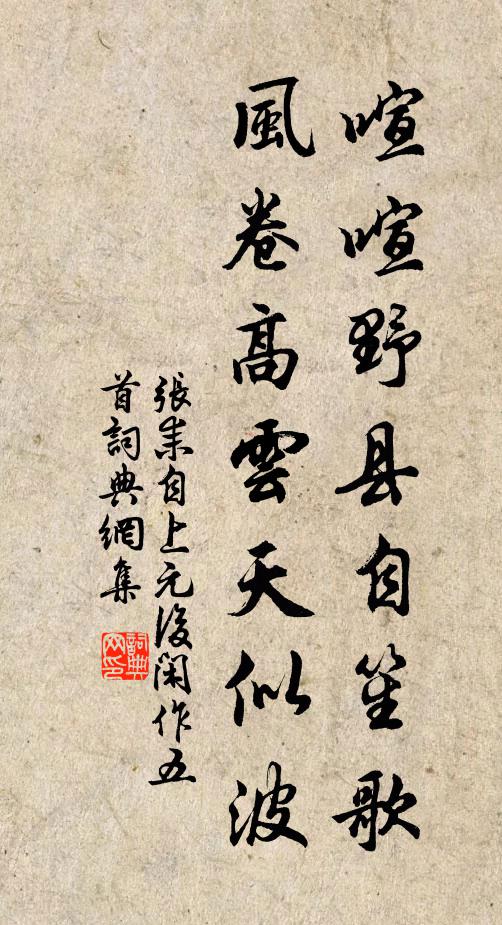 喧喧野县自笙歌
風卷高雲天似波
張耒自上元後閑作五
首詞典網集
詞典网印